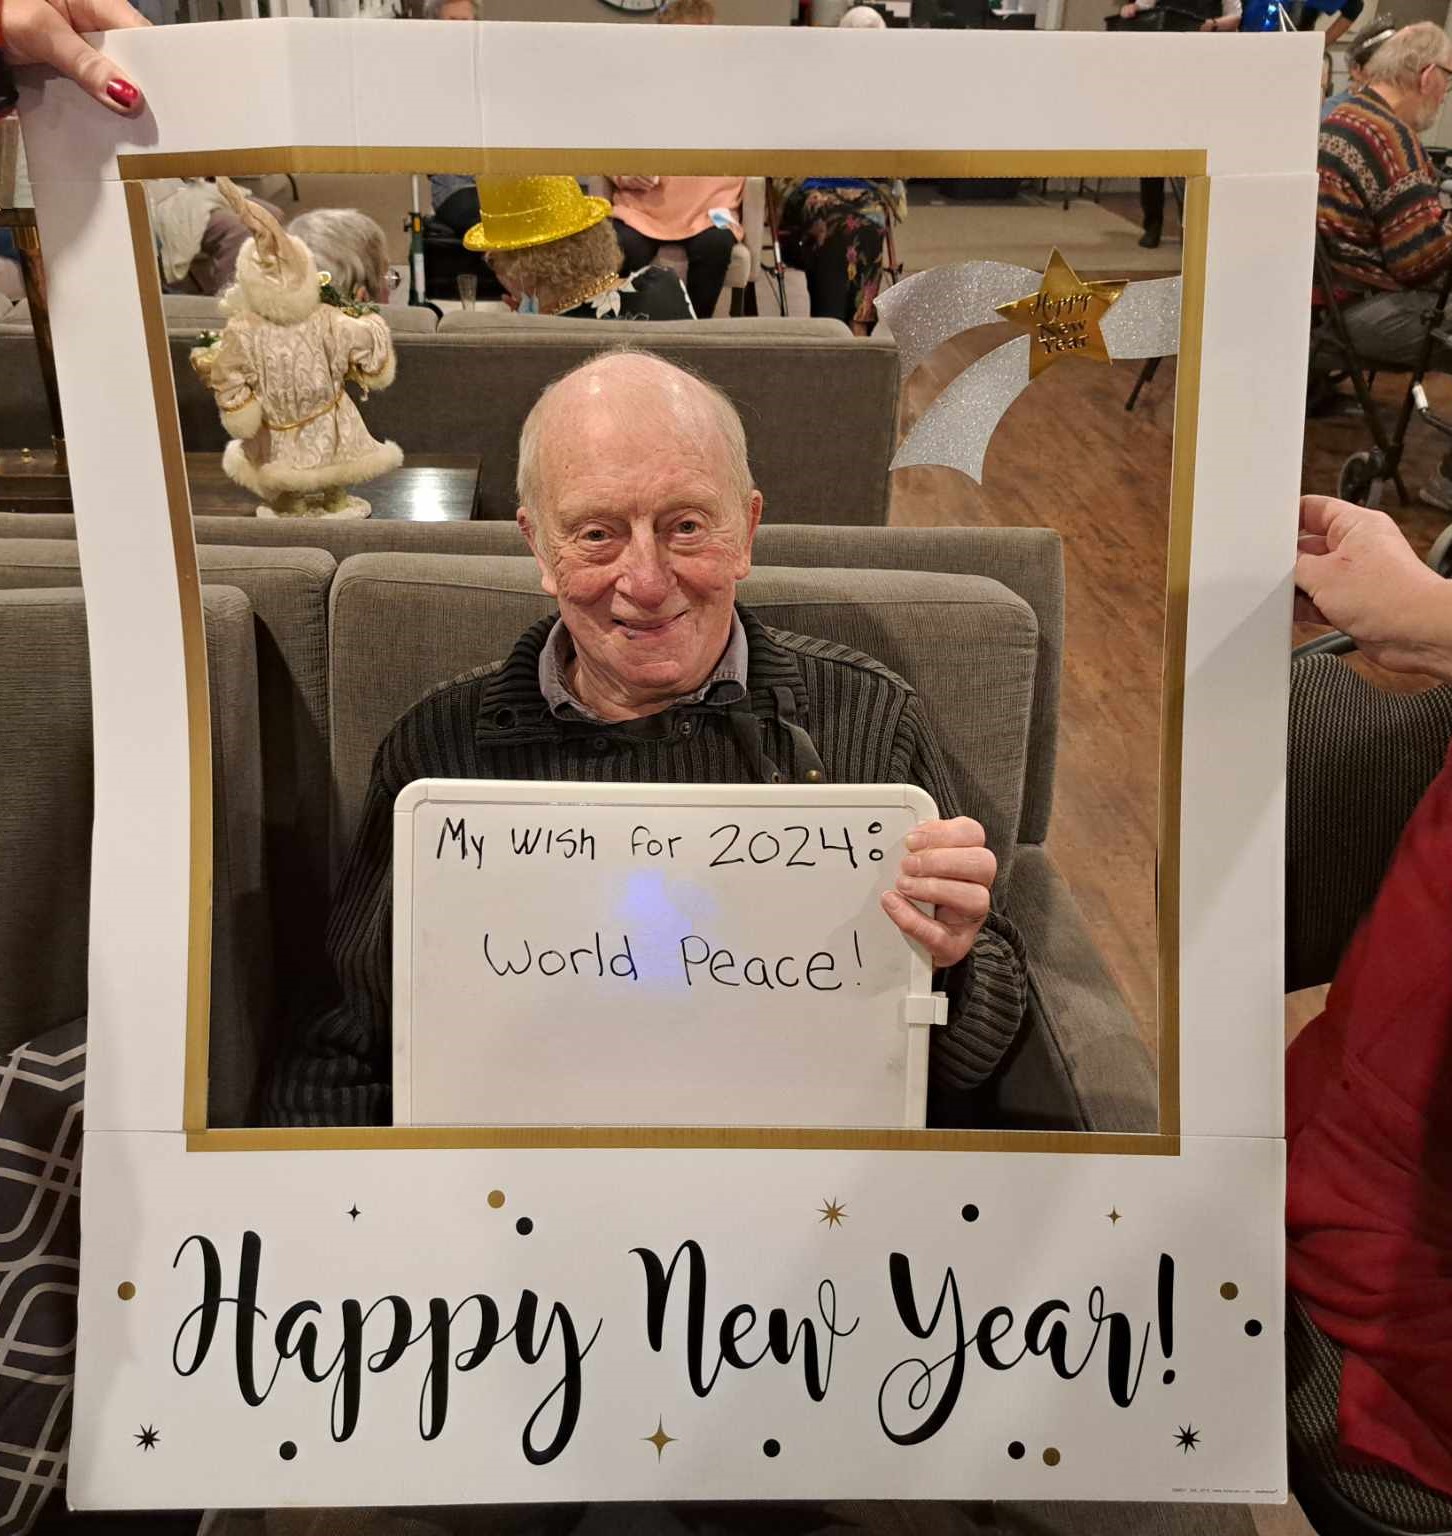 Happy
New
Year
My Wish for 2024:
World Peace!
Happy New Year!